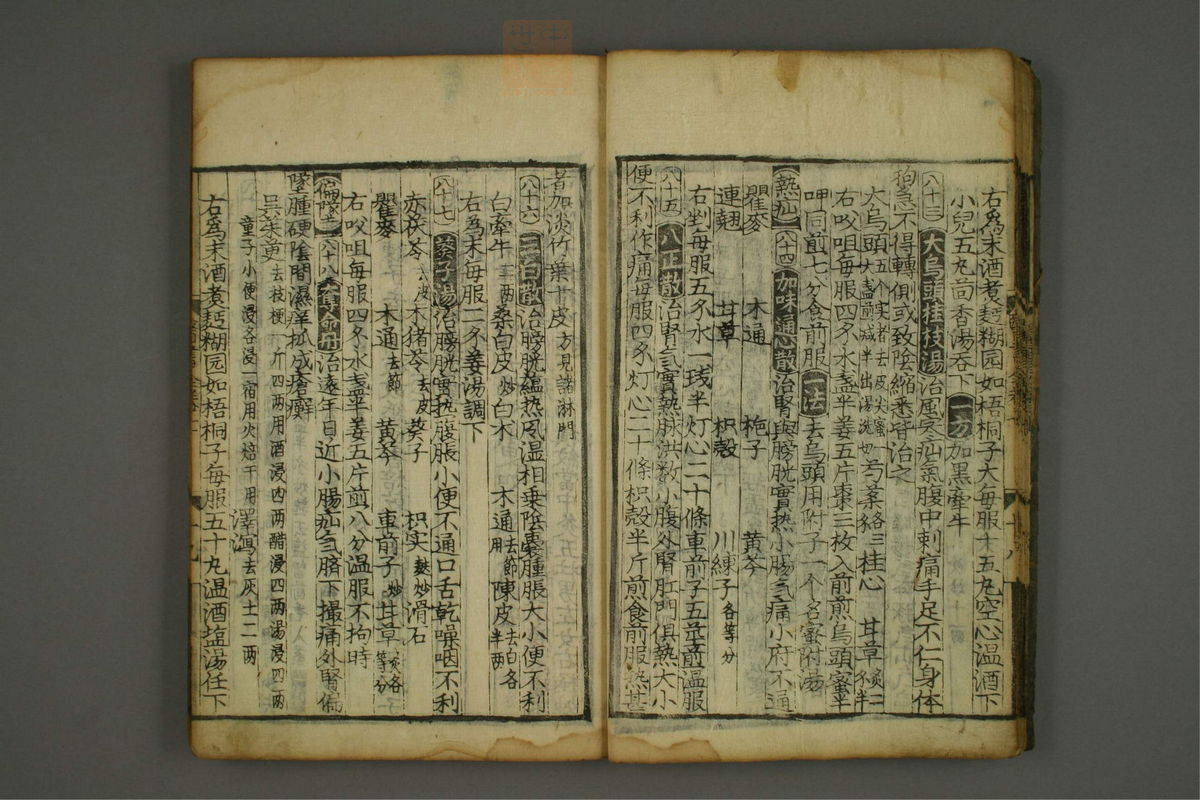 右爲末酒煮麪糊园如梧桐子大每服十五丸空心温酒下
小兒五丸茴香湯吞下 一方 加黑牽牛
八十三 大烏頭桂枝湯 治風寒疝氣腹中刺痛手足不仁身体
拘急不得轉側或致陰縮悉皆治之
大烏頭 五个实者去皮尖蜜一大盏煎减半出湯洗切 芍薬 各三 桂心 甘草
右㕮咀每服四钱水盏半姜五片棗三枚入前煎烏頭蜜半
呷同煎七分食前服 一法 去烏頭用附子一个名蜜附湯
熱疝 八十四 加味通心散 治腎與膀胱實热小腸气痛小府不通
瞿麥 木通 梔子 黄芩
連翹 甘草 枳殼 川練子 各等分
右剉每服五钱水一盏半灯心二十條車前子五莖煎温服
八十五 八正散 治腎气實熱脉洪数小腹外腎肛門俱熱大小
便不利作痛每服四钱灯心二十條枳殼半斤煎食前服热甚
者加淡竹葉十皮 方見諸淋門
八十六 三白散 治膀胱蘊热风湿相乗陰囊腫脹大小便不利
白牽牛 二两 桑白皮 炒 白术 木通 去節 陳皮 去白各半两
右為末每服二钱姜湯調下
八十七 葵子湯 治膀胱實热腹脹小便不通口舌乾噪咽不利
赤茯苓 去皮 木猪苓 去皮 葵子 枳实 麩炒 滑石
瞿麥 木通 去節 黄芩 車前子 炒 甘草 炙各等分
右㕮咀每服四钱水盏半姜五片煎八分温服不拘時
偏墜 八十八 奪命丹 治遠年日近小腸疝气臍下撮痛外腎偏
墜腫硬陰間濕痒抓成瘡癬
吴茱萸 去枝梗一斤四两用酒浸四两醋浸四两湯浸四两童子小便浸各浸一宿用火焙干用 澤瀉 去灰土二两
右爲末酒煮麪糊园如梧桐子每服五十丸温酒塩湯任下